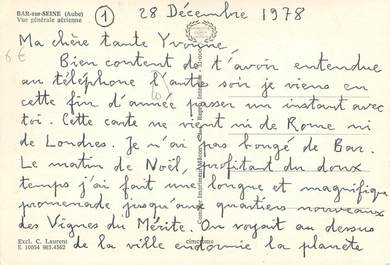 BAR-sur-SEINE (Aube)
Vue générale aérienne
1
28 Décembre 1978
6 €
Ma chère tante Yvonne,
Bien content de t'avoir entendue
au téléphone l'autre soir je viens en
cette fin d'année passer un instant avec
toi. Cette carte ne vient ni de Rome ni
de Londres. Je n'ai pas bougé de Bar.
Le matin de Noël, profitant du doux
temps j'ai fait une longue et magnifique
promenade jusqu'aux quartiers nouveaux
des Vignes du Mérite. On voyait au dessus
de la ville endormie la planète
Excl. C. Laurent
E 10034 983.4362
cim